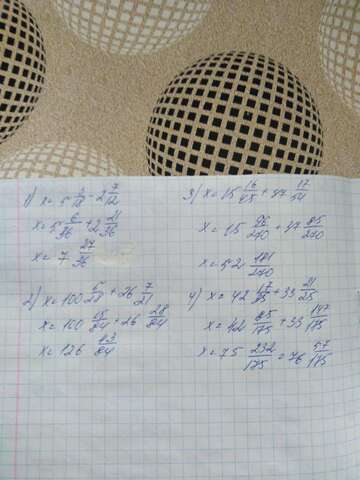 1) x = 5 3/18 + 2 7/12
x = 5 6/36 + 2 21/36
x = 7 27/36
2) x = 100 5/28 + 26 7/21
x = 100 15/84 + 26 28/84
x = 126 43/84
3) x = 15 16/45 + 37 17/54
x = 15 96/270 + 37 85/270
x = 52 181/270
4) x = 42 17/35 + 33 21/25
x = 42 85/175 + 33 147/175
x = 75 232/175 = 76 57/175